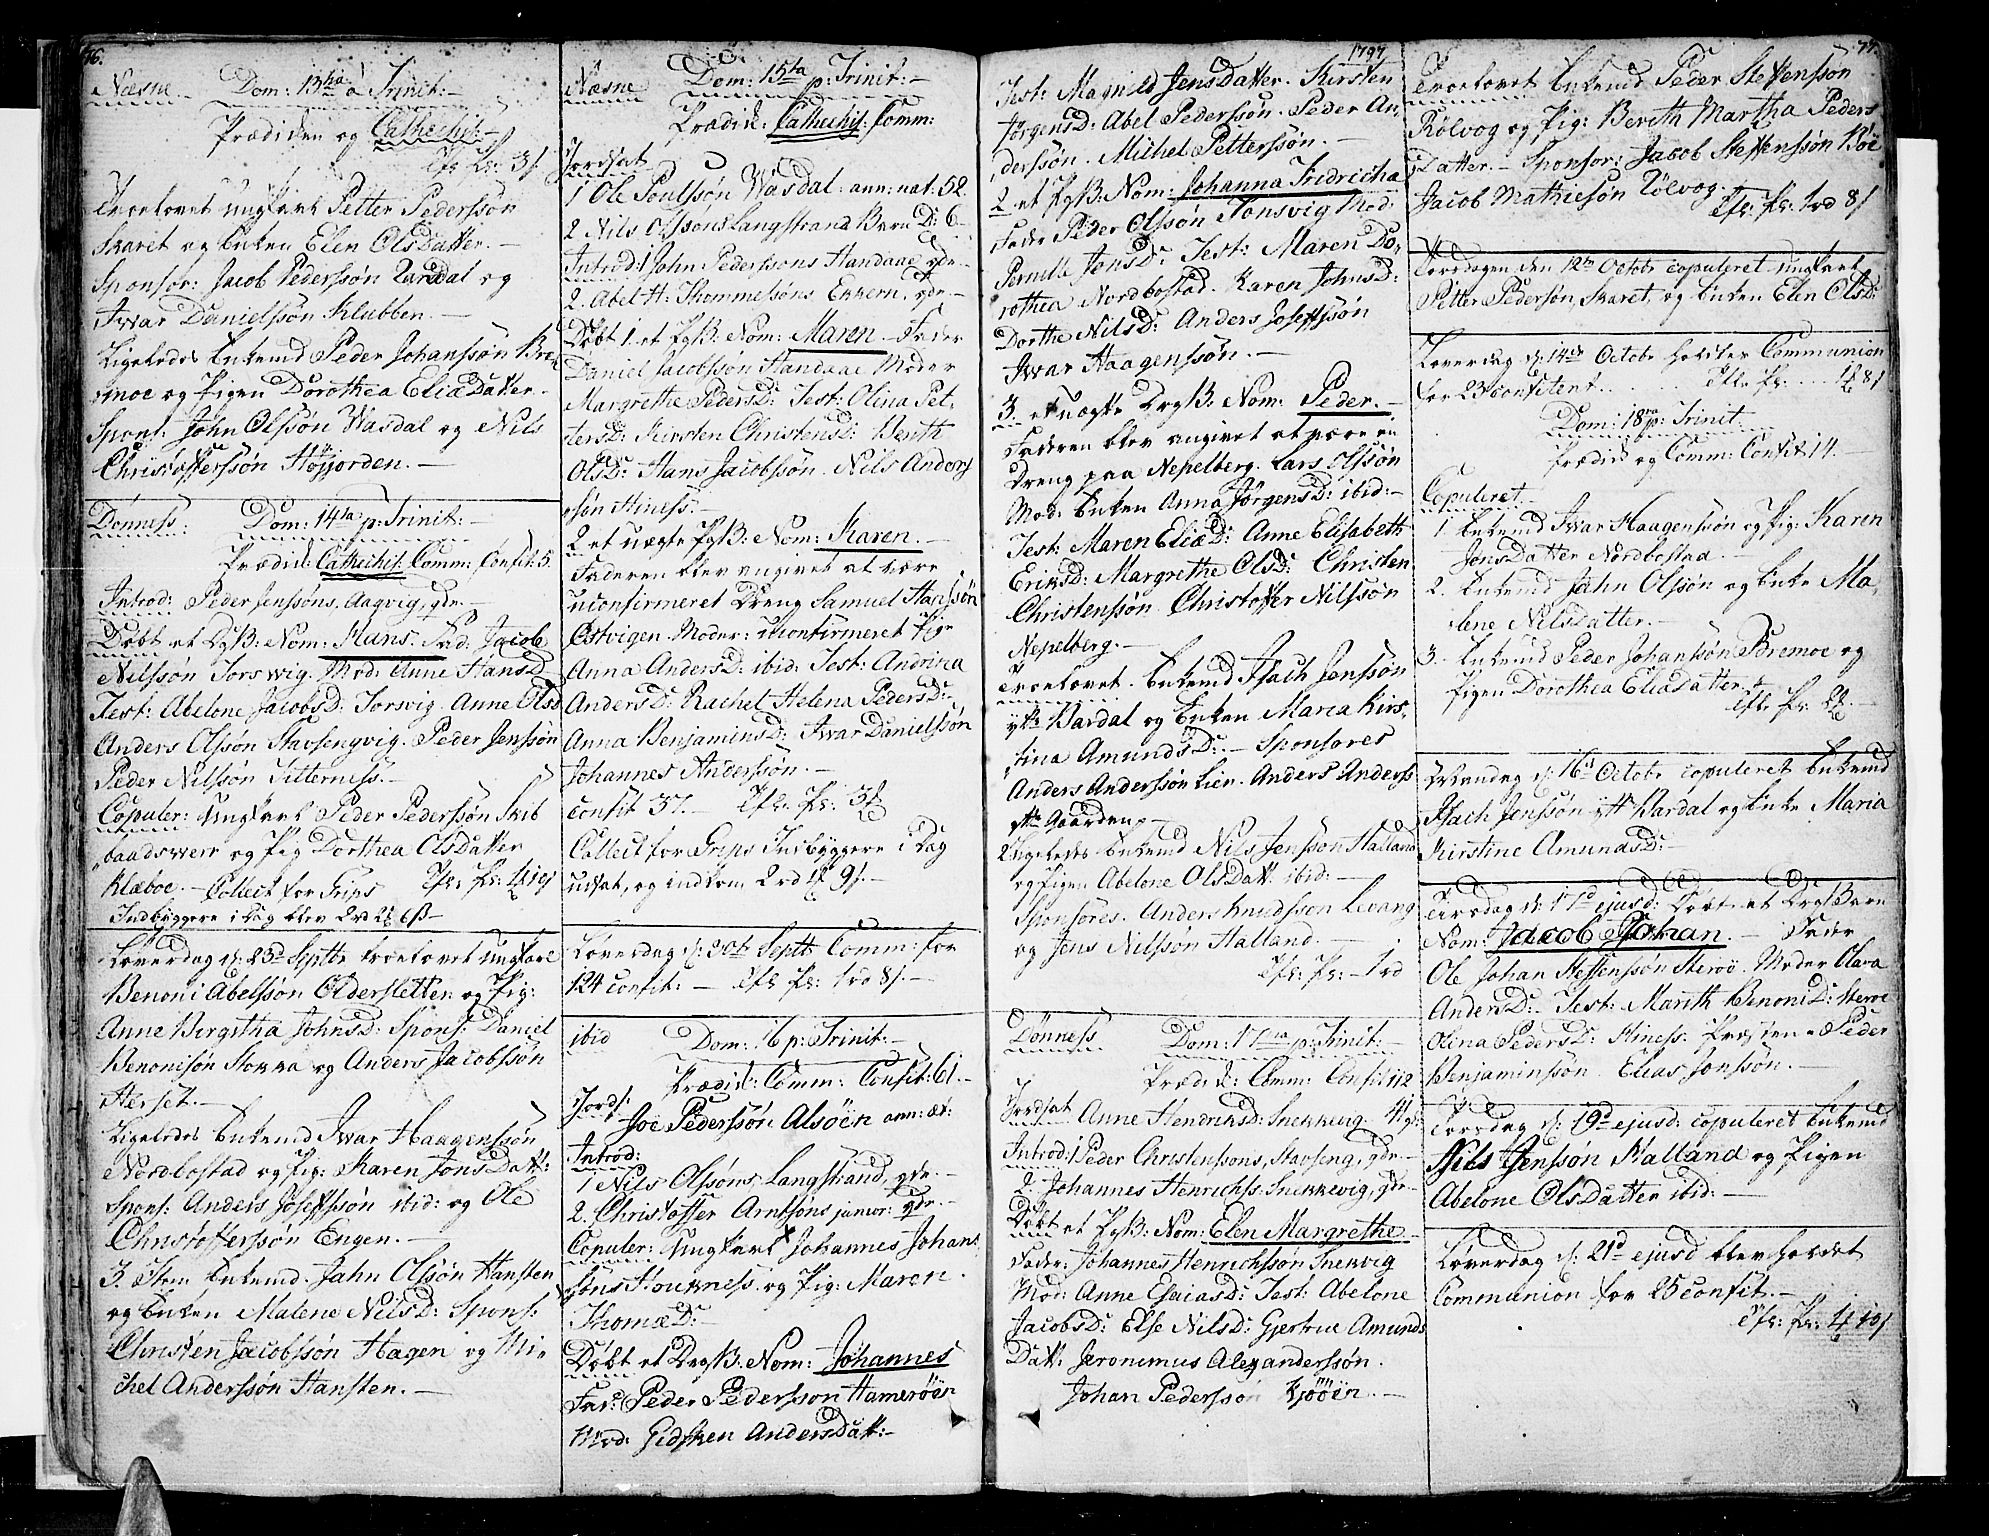 76.
Næsne Dom: 13tia a Trinit:
Prædiken og Cathechis:
Troelovet ungkarl Petter Pederssøn
Skaret og Enken Elen Olsdatter.
Sponsor: Jacob Pederssøn Zardal og
Iwar Danielssøn Klubben.
Ligeledes Enkemd Peder Johanssøn Bre-
moe og Pigen Dorothea EliæDatter.
Spons: John Olssøn Wasdal og Nils
Christofferssøn Høyjorden.
Dønness: Dom: 14ta p: Trinit:
Prædik: Cathechis: Comm: Confit: 5.
Introd: Peder Jenssøns, Aagvig, qde.
Døbt et DrgB: Nom: Hans. Fad: Jacob
Nilssøn Torswig. Mod: Anne HansD:
Test: Abelone JacobsD: Torsvig. Anne OlsD
Anders Olssøn Stavsengvig. Peder Jenssøn
Peder Nilssøn Titterness.
Copuler: Ungkarl Peder Pederssøn Skib
baadswær og Pig Dorthea OlsDatter
Klæboe. Collect for Grips
Indbyggere i Dag blev 2rd 2 6ß
Løverdag d: 23d Septbr troelovet ungkarl
Benoni Abelssøn Oldersletten og Pig:
Anne Birgitha JohnsD: Spons: Daniel
Benonisøn Stokka og Anders Jacobssøn
Herset.
Ligeledes Enkemd Iwar Haagenssøn
Nordbostad og Pig: Karen JonsDatt:
Spons: Anders Josephssøn ibid: og Ole
Christofferssøn Engen.
3. Item Enkemd. Jahn Olssøn Hansten
og Enken Malene NilsD: Spons:
Christen Jacobssøn Hagen og Mi-
chel Anderssøn Hansten.
Næsne Dom: 15ta p: Trinit:
Prædik: Cathechis: Comm:
Jordsat
1 Ole Poulssøn Wasdal: ann: nat: 52.
2 Nils Olssøns Langstrand Barn D: 6
Introd: 1 John Pederssøns Handaae qde
2. Abel H: Thommessøns Ekkern, qde
Døbt 1. et PgB: Nom: Maren Fader
Daniel Jacobssøn Handaae Moder
Margrethe PedersD: Test: Olina Pet-
tersD: Kirsten ChristensD: Berith
OlsD: Hans Jacobssøn. Nils Anders
søn Hiness.
2 et uægte PgB: Nom: Karen.
Faderen blev angivet at være
uconfirmeret Dreng Samuel Hanssøn
Østvigen. Moder: uconfirmeret Pige
Anna AndersD: ibid: Test: Andrina
AndersD: Rachel Helena PedersD:
Anna BenjaminsD: Iwar Danielssøn
Johannes Anderssøn.
Confit 37.
Collect for Grips Indbyggere i Dag
udsat, og indkom 2 rd 1 9ß.
Løverdag d: 30t Septb Comm: for
124 confit:
ibid Dom: 16 p: Trinit:
Prædik: Comm: Confit: 61.
Jords:
Joe Pederssøn Alsøen ann: æt:
Introd:
1 Nils Olssøns, Langstrand, qde.
2. Christoffer Arntsøns junior: qde.
Copuler: Ungkarl Johannes Johans
søns Houkness. og Pig: Maren
ThomæD:
Døbt et DrgB: Nom: Johannes
Fad: Peder Pederssøn Hamerøen
Mod: Gidsken AndersDatt:
1797
Test: Magnild JensDatter. Kirsten
JørgensD: Abel Pederssøn. Peder An-
derssøn. Michel Petterssøn.
2 et PgB: Nom: Johanna Fridricha
Fader Peder Olssøn Tonsvig Mod:
Pernille JonsD: Test: Maren Do-
rothea Nordbostad. Karen JohnsD:
Dorthe NilsD: Anders Josephssøn
Iwar Haagenssøn.
3. et uægte DrgB: Nom: Peder.
Faderen blev angivet at være en
Dreng paa Nepelberg. Lars Olssøn
Mod: Enken Anna JørgensD: ibid:
Test: Maren EliæD: Anne Elisabeth
EriksD: Margrethe OlsD: Christen
Christenssøn Christoffer Nilssøn
Nepelberg.
Troelovet. Enkemd Isach Jenssøn
ytt: Bardal og Enken Maria Kirs-
tina AmundsD: Sponsores
Anders Anderssøn Lien. Anders Anderss
ytt: Gaarden.
Ligeledes Enkemd Nils Jenssøn Halland
og Pigen Abelone OlsDatt: ibid:
Sponsores. Anders Knudssøn Levang
og Jens Nilssøn Halland.
Dønness Dom: 17ma p: Trinit:
Prædik: Comm: Confit 112
Jordsat Anne HendriksD: Snekkevig.
Introd: 1 Peder Christenssøns, Stavseng, qde
2. Johannes Henrichss: Snekkevig, qde
Døbt et PgB: Nom: Elen Margrethe
Fader: Johannes Henrichssøn Snekvig
Mod: Anne EsaiasD: Test: Abelone
JacobsD: Else NilsD: Gjertrue Amunds
Datt: Jeronimus Alexanderssøn.
Johan Pederssøn Kjøøen.
77.
Troelovet Enkemd Peder Steffenssøn
Rølvog og Pig: Berith Martha Peders
Datter. Sponsor: Jacob Steffenssøn Böe
Jacob Mathiesøn Rølvog.
Torsdagen den 12te Octobr copuleret ungkarl
Pitter Pederssøn, Skaret, og Enken Elen OlsD:
Løverdag d: 14de Octobr holdtes Communion
for 23 confitent.
Dom: 18va p: Trinit:
Prædik og Comm: Confit 14.
Copuleret.
1 Enkemd Iwar Haagenssøn og Pig: Karen
JonsDatter Nordbostad
2. Enkemd Jahn Olssøn og Enke Ma-
lene Nilsdatter.
3. Enkemd Peder Johanssøn Bremoe og
Pigen Dorothea Eliasdatter
Mandag d: 16d Octobr copuleret Enkemd
Isach Jenssøn ytt Bardal og Enke Maria
Kirstine AmundsD:
Tirsdag d: 17d ejusd: døbt et DrgBarn
Nom: Jacob Johan. Fader
Ole Johan Steffenssøn Sterøe. Moder Olava
AndersD: Test: Marith BenoniD: Sterøe
Olina PedersD: Hiness. Præsten. Peder
Benjaminssøn. Elias Jonssøn.
Torsdag d: 19d ejusd: copuleret Enkemd
Nils Jenssøn Halland og Pigen
Abelone OlsDatter ibid:
Løverdag d: 21d ejusd blev holdet
Communion for 25 confit.